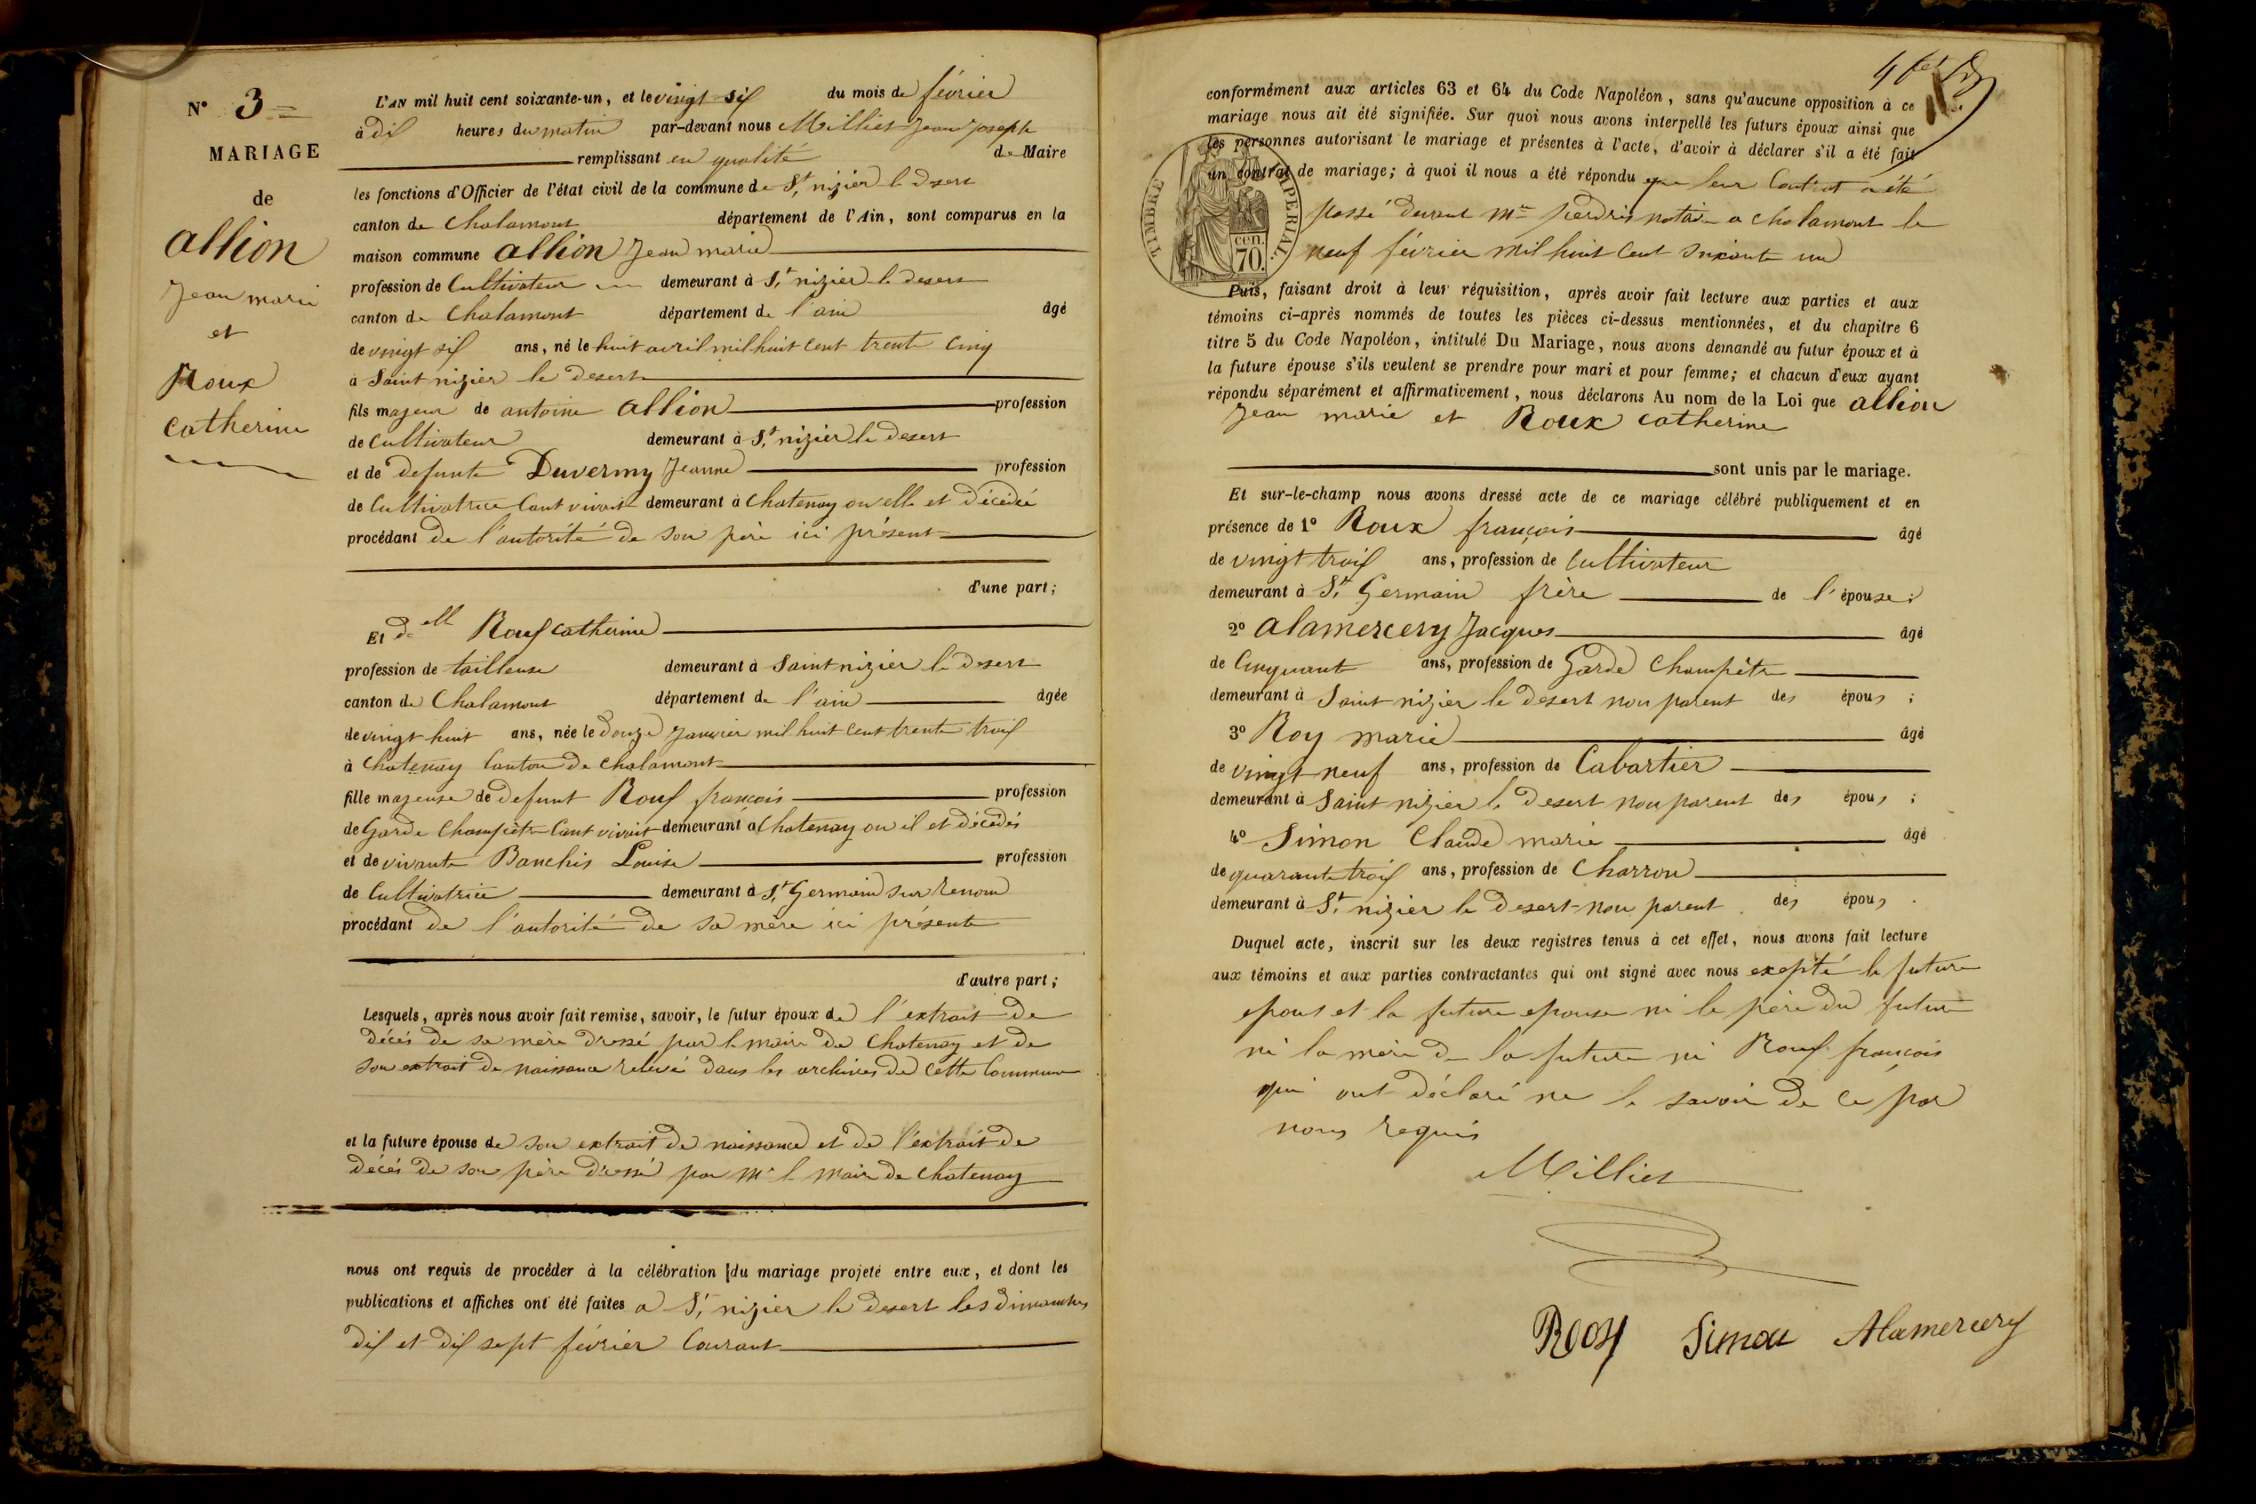 N° 3
MARIAGE
de
allion
Jean marie
et
Roux
Catherine
L'AN mil huit cent soixante-un, et le vingt six du mois de février
à dix heures du matin par-devant nous Milliet Jean Joseph
remplissant en qualité de Maire
les fonctions d'Officier de l'état civil de la commune de St nizier le desert
canton de Chalamont département de l'Ain, sont comparus en la
maison commune allion Jean marie
profession de Cultivateur demeurant à St nizier le desert
canton de Chalamont département de l'ain âgé
de vingt six ans, né le huit avril mil huit cent trente cinq
à Saint nizier le desert
fils majeur de antoine allion profession
de Cultivateur demeurant à St nizier le desert
et de defunte Duvermy Jeanne profession
de Cultivatrice Cant vivait demeurant à Chatenay ou elle et décédée
procédant de l'autorité de son père ici présent
d'une part;
Et delle Roux Catherine
profession de tailleuse demeurant à Saint nizier le desert
canton de Chalamont département de l'ain âgée
de vingt huit ans, née le douze Janvier mil huit cent trente trois
à Chatenay Canton de Chalamont
fille majeure de defunt Roux françois profession
de Garde Champêtre Cant vivait demeurant à Chatenay ou il et décédés
et de vivante Banchis Louise profession
de Cultivatrice demeurant à St Germain sur renom
procédant de l'autorité de sa mère ici présente
d'autre part;
Lesquels, après nous avoir fait remise, savoir, le futur époux de l'extrait de
décés de sa mère dressé par le maire de Chatenay et de
son extrait de naissance relevé dans les archives de cette Commune
et la future épouse de son extrait de naissance et de l'extrait de
décés de son père dressé par Mr le Maire de Chatenay
nous ont requis de procéder à la célébration du mariage projeté entre eux, et dont les
publications et affiches ont été faites a St nizier le desert les dimanches
dix et dix sept février Courant
conformément aux articles 63 et 64 du Code Napoléon, sans qu'aucune opposition à ce
mariage nous ait été signifiée. Sur quoi nous avons interpellé les futurs époux ainsi que
les personnes autorisant le mariage et présentes à l'acte, d'avoir à déclarer s'il a été fait
un contrat de mariage; à quoi il nous a été répondu que leur Contrat a été
passé devant Me perdrix notaire a Chalamont le
neuf février mil huit cent soixante un
TIMBRE IMPERIAL.
cen.
70.
Puis, faisant droit à leur réquisition, après avoir fait lecture aux parties et aux
témoins ci-après nommés de toutes les pièces ci-dessus mentionnées, et du chapitre 6
titre 5 du Code Napoléon, intitulé Du Mariage, nous avons demandé au futur époux et à
la future épouse s'ils veulent se prendre pour mari et pour femme; et chacun d'eux ayant
répondu séparément et affirmativement, nous déclarons Au nom de la Loi que allion
Jean marie et Roux Catherine
sont unis par le mariage.
Et sur-le-champ nous avons dressé acte de ce mariage célébré publiquement et en
présence de 1° Roux françois âgé
de vingt trois ans, profession de Cultivateur
demeurant à St Germain frère de l'épouse;
2° alamercery Jacques âgé
de Cinquante ans, profession de Garde Champêtre
demeurant à Saint nizier le desert non parent des épous;
3° Roy marie âgé
de vingt neuf ans, profession de Cabartier
demeurant à Saint nizier le desert non parent des épous;
4° Simon Claude marie âgé
de quarante trois ans, profession de Charron
demeurant à St nizier le desert non parent des épous.
Duquel acte, inscrit sur les deux registres tenus à cet effet, nous avons fait lecture
aux témoins et aux parties contractantes qui ont signé avec nous excepté le future
epous et la future epouse ni le père du future
ni la mère de la future ni Roux françois
qui ont déclaré ne le savoir de ce par
nous requis
Milliet
Rooy Simon Alamercery